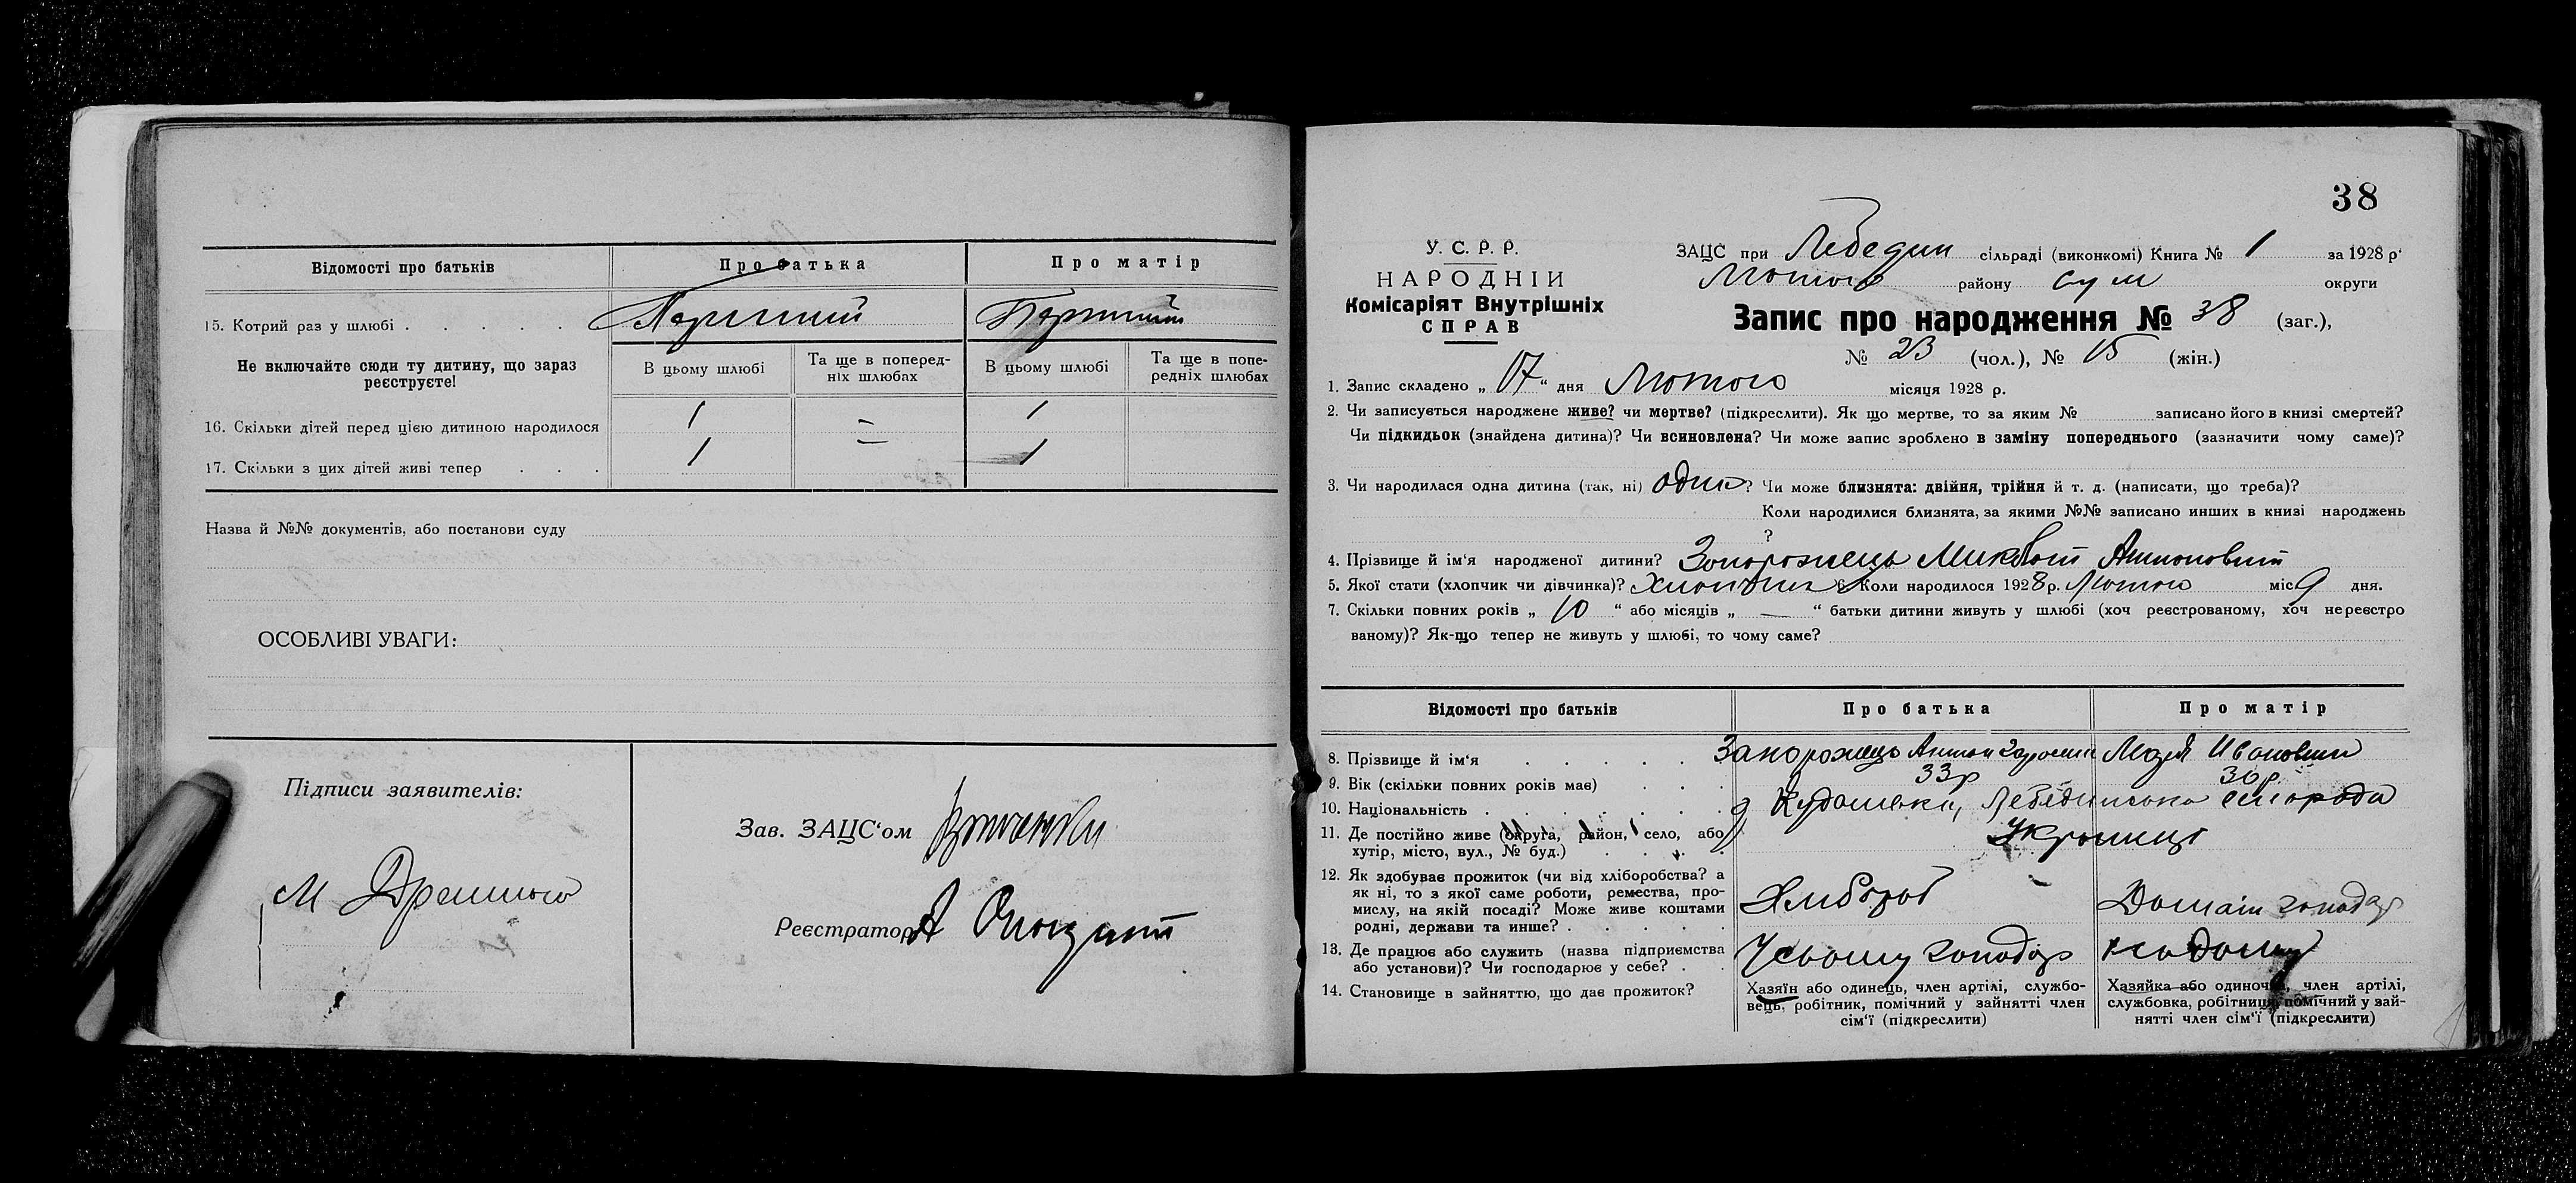 Відомості про батьків Про батька Про матір
15. Котрий раз у шлюбі . . . . . Перший Перший
Не включайте сюди ту дитину, що зараз реєструєте!
В цьому шлюбі Та ще в попередніх шлюбах В цьому шлюбі Та ще в попередніх шлюбах
16. Скільки дітей перед цією дитиною народилося 1 = 1
17. Скільки з цих дітей живі тепер . . . 1 1
Назва й №№ документів, або постанови суду
ОСОБЛИВІ УВАГИ:
Підписи заявителів:
М
Зав. ЗАЦС‘ом
Реєстратор А
38
У. С. Р. Р.
НАРОДНІЙ
Комісаріят Внутрішніх
СПРАВ
ЗАЦС при Лебедин сільраді (виконкомі) Книга № 1 за 1928 р.
Лютого району Сум округи
Запис про народження № 38 (заг.),
№ 23 (чол.), № 15 (жін.)
1. Запис складено „ 17 “ дня Лютого місяця 1928 р.
2. Чи записується народжене живе? чи мертве? (підкреслити). Як що мертве, то за яким № записано його в книзі смертей?
Чи підкидьок (знайдена дитина)? Чи всиновлена? Чи може запис зроблено в заміну попереднього (зазначити чому саме)?
3. Чи народилася одна дитина (так, ні) одна? Чи може близнята: двійня, трійня й т. д. (написати, що треба)?
Коли народилися близнята, за якими №№ записано инших в книзі народжень
?
4. Прізвище й ім‘я народженої дитини? Запорожець Микола Антонович
5. Якої стати (хлопчик чи дівчинка)? Хлопчик 6. Коли народилося 1928 р. Лютого міс 9 дня.
7. Скільки повних років „ 10 “ або місяців „ — “ батьки дитини живуть у шлюбі (хоч реєстрованому, хоч нереєстро
ваному)? Як-що тепер не живуть у шлюбі, то чому саме?
Відомості про батьків Про батька Про матір
8. Прізвище й ім‘я . . . . . Запорожець Антон Марія Івановна
9. Вік (скільки повних років має) . . . 33р 36р.
10. Національність . . . . . . . Лебединська сільрада
11. Де постійно живе (округа, район, село, або
хутір, місто, вул., № буд.) . . . . Українці
12. Як здобуває прожиток (чи від хліборобства? а
як ні, то з якої саме роботи, ремества, про-
мислу, на якій посаді? Може живе коштами
родні, держави та инше? . . . . . Хлібороб Домаш господар
13. Де працює або служить (назва підприємства
або установи)? Чи господарює у себе? . . У своєму господар
14. Становище в зайняттю, що дає прожиток?
Хазяїн або одинець, член артілі, службо-
вець, робітник, помічний у зайнятті член
сім‘ї (підкреслити)
Хазяйка або одиночка, член артілі,
службовка, робітниця, помічний у зай-
нятті член сім‘ї (підкреслити)